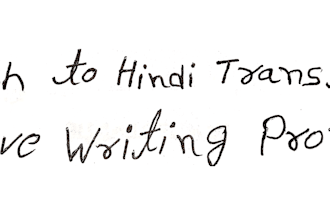 h to Hindi Trans.
ve Writing Pro